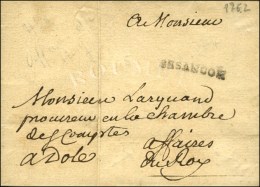 1762
A Monsieur
BESANCON
Monsieur Larquand
procureur en la chambre
des Comptes affaires
a Dole du Roy